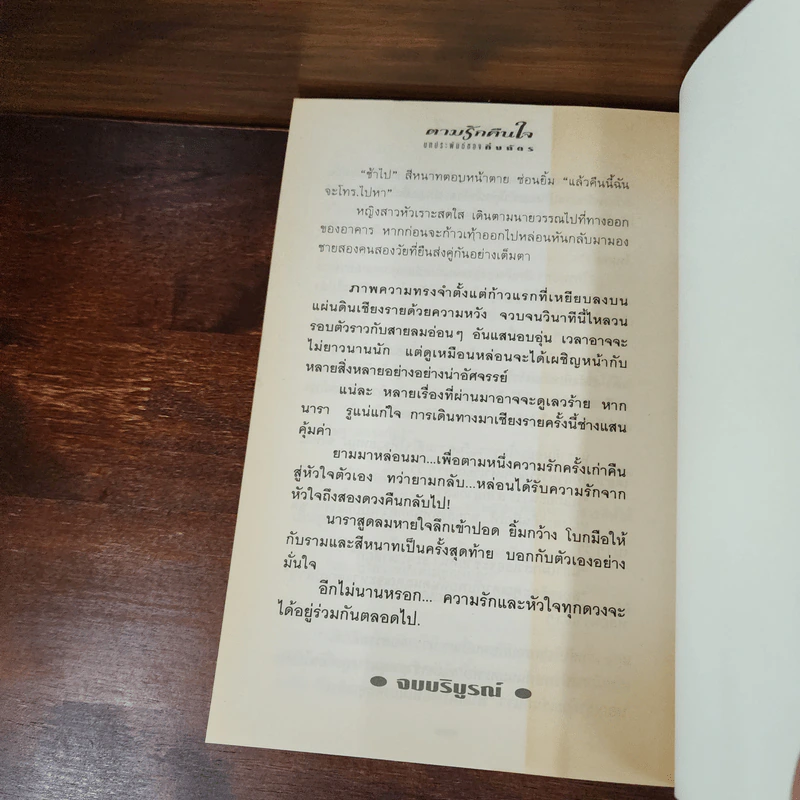 ตามรักคืนใจ
บทประพันธ์ของกิ่งฉัตร
"ช้าไป" สีหนาทตอบหน้าตาย ซ่อนยิ้ม "แล้วคืนนี้ฉัน
จะโทร.ไปหา"
หญิงสาวหัวเราะสดใส เดินตามนายวรรณไปที่ทางออก
ของอาคาร หากก่อนจะก้าวเท้าออกไปหล่อนหันกลับมามอง
ชายสองคนสองวัยที่ยืนส่งคู่กันอย่างเต็มตา
ภาพความทรงจำตั้งแต่ก้าวแรกที่เหยียบลงบน
แผ่นดินเชียงรายด้วยความหวัง จวบจนวินาทีนี้ไหลวน
รอบตัวราวกับสายลมอ่อนๆ อันแสนอบอุ่น เวลาอาจจะ
ไม่ยาวนานนัก แต่ดูเหมือนหล่อนจะได้เผชิญหน้ากับ
หลายสิ่งหลายอย่างอย่างน่าอัศจรรย์
แน่ละ หลายเรื่องที่ผ่านมาอาจจะดูเลวร้าย หาก
นารา รู้แน่แก่ใจ การเดินทางมาเชียงรายครั้งนี้ช่างแสน
คุ้มค่า
ยามมาหล่อนมา...เพื่อตามหนึ่งความรักครั้งเก่าคืน
สู่หัวใจตัวเอง ทว่ายามกลับ...หล่อนได้รับความรักจาก
หัวใจถึงสองดวงคืนกลับไป!
นาราสูดลมหายใจลึกเข้าปอด ยิ้มกว้าง โบกมือให้
กับรามและสีหนาทเป็นครั้งสุดท้าย บอกกับตัวเองอย่าง
มั่นใจ
อีกไม่นานหรอก... ความรักและหัวใจทุกดวงจะ
ได้อยู่ร่วมกันตลอดไป.
● จบบริบูรณ์ ●